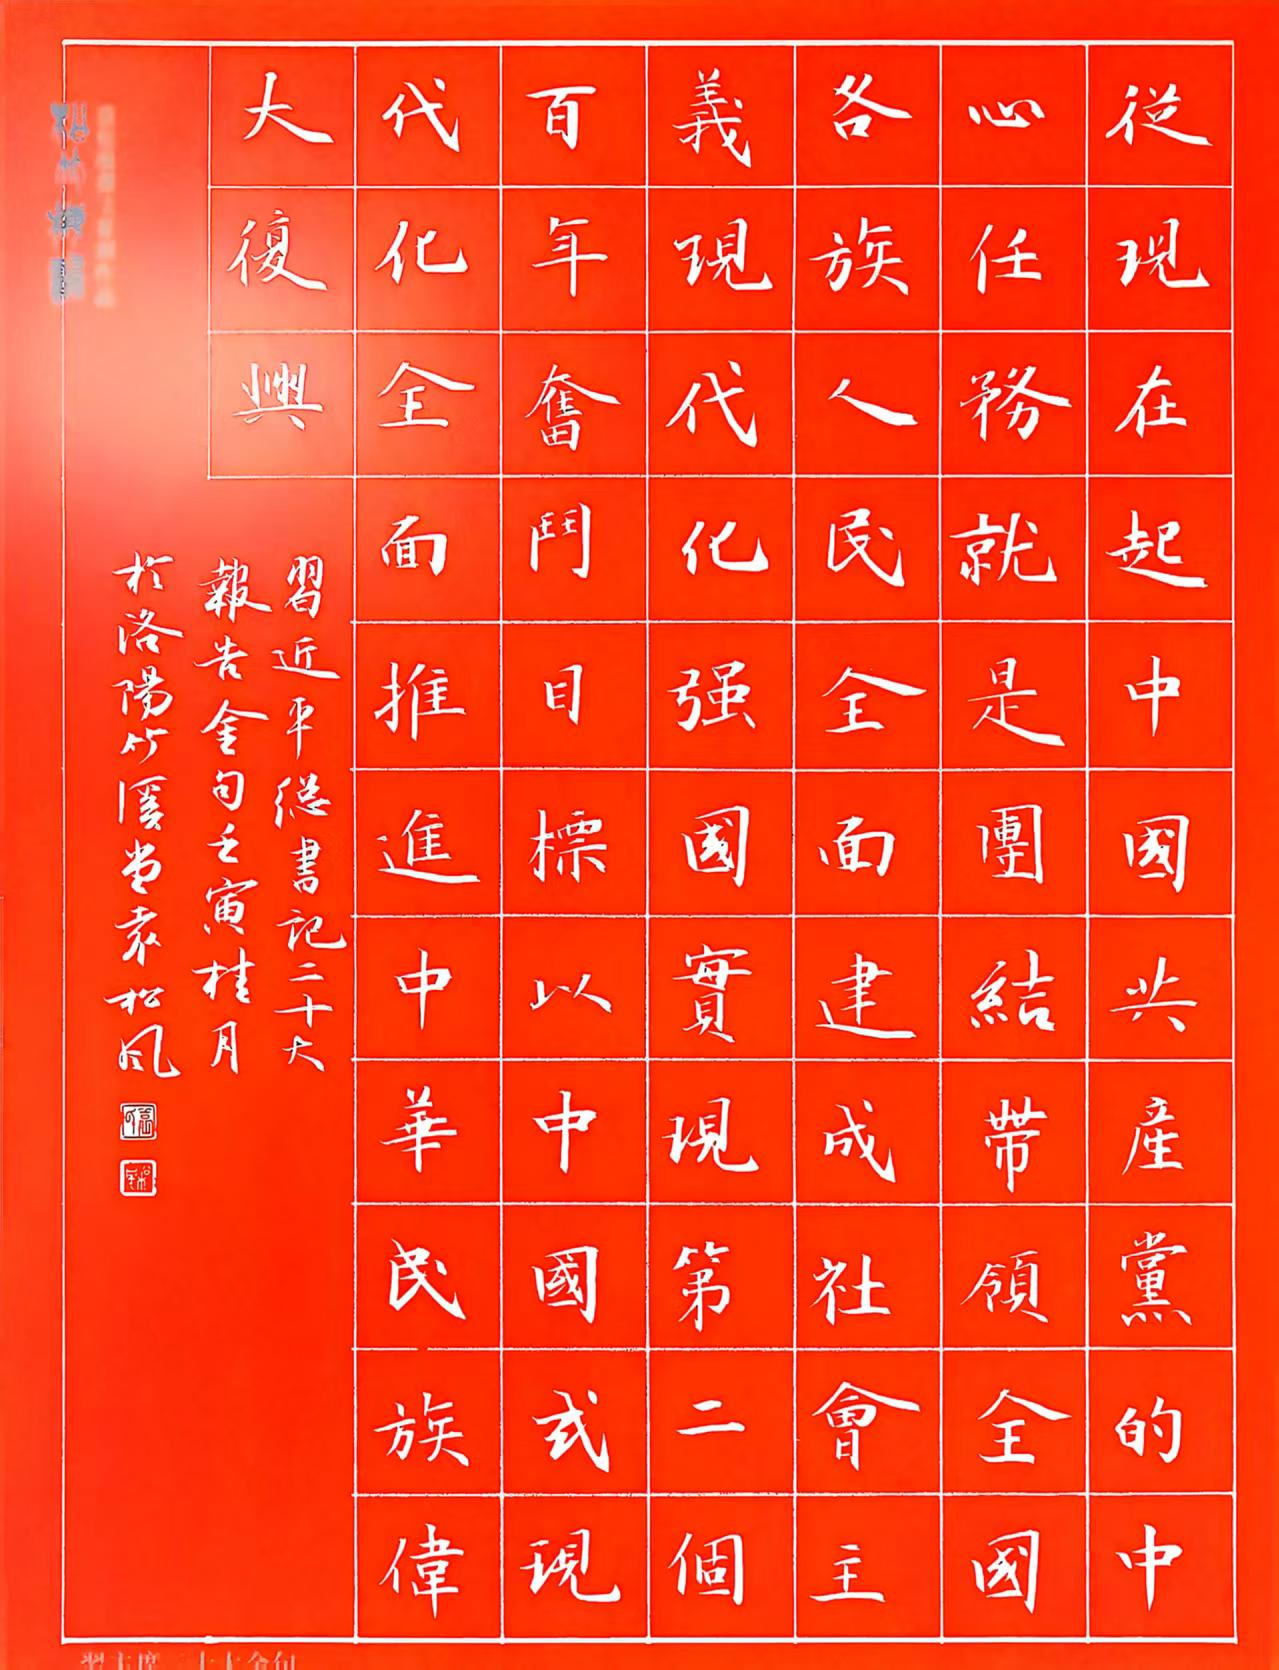 從現在起中國共產黨的中
心任務就是團結帶領全國
各族人民全面建成社會主
義現代化强國實現第二個
百年奮鬥目標以中國式現
代化全面推進中華民族偉
大復興
習近平總書記二十大
報告金句壬寅桂月
於洛陽竹溪堂袁松风